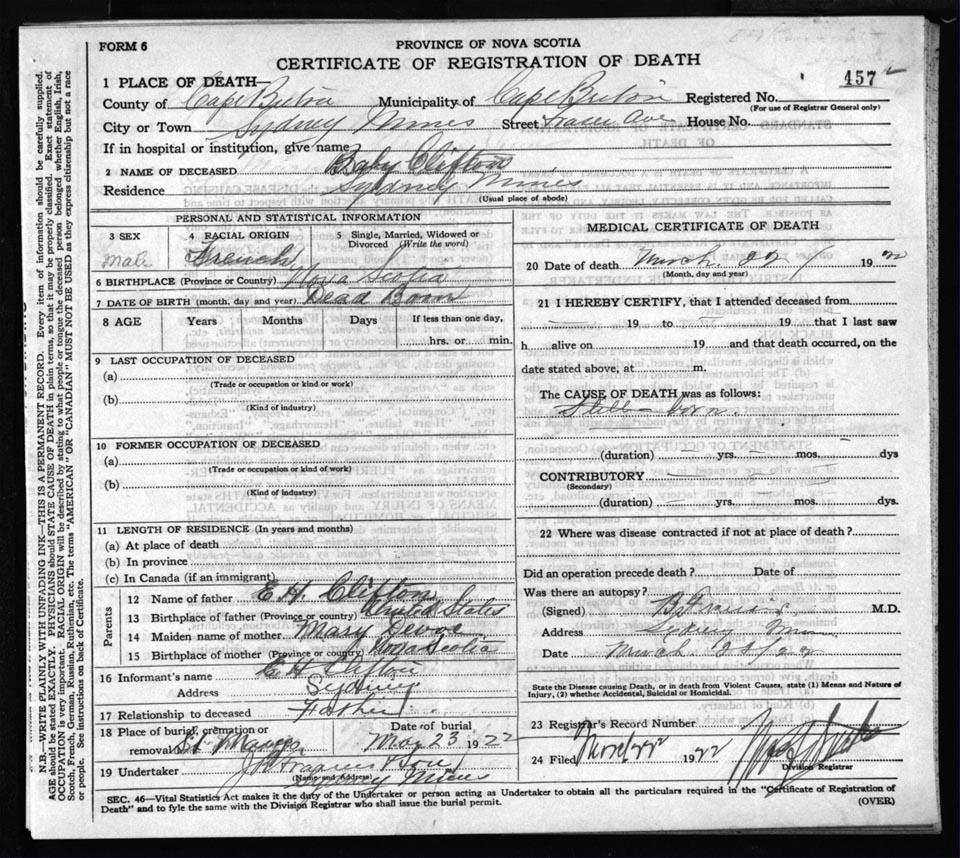 FORM 6
PROVINCE OF NOVA SCOTIA
CERTIFICATE OF REGISTRATION OF DEATH
457
1 PLACE OF DEATH—
County of Cape Breton Municipality of Cape Breton Registered No.
(For use of Registrar General only)
City or Town Sydney Mines Street Fraser Ave House No.
If in hospital or institution, give name
2 NAME OF DECEASED Baby Clifton
Residence Sydney Mines
(Usual place of abode)
PERSONAL AND STATISTICAL INFORMATION
3 SEX 4 RACIAL ORIGIN 5 Single, Married, Widowed or Divorced (Write the word)
Male French
6 BIRTHPLACE (Province or Country) Nova Scotia
7 DATE OF BIRTH (month, day and year) Dead Born
8 AGE Years Months Days If less than one day,
hrs. or min.
9 LAST OCCUPATION OF DECEASED
(a)
(Trade or occupation or kind or work)
(b)
(Kind of industry)
10 FORMER OCCUPATION OF DECEASED
(a)
(Trade or occupation or kind or work)
(b)
(Kind of industry)
11 LENGTH OF RESIDENCE (In years and months)
(a) At place of death
(b) In province
(c) In Canada (if an immigrant)
Parents
12 Name of father E H Clifton
13 Birthplace of father (Province or country) United States
14 Maiden name of mother Mary
15 Birthplace of mother (Province or country) Nova Scotia
16 Informant's name E H Clifton
Address Sydney
17 Relationship to deceased Father
18 Place of burial, cremation or removal Date of burial
23 1922
19 Undertaker
(Name and Address)
Sydney Mines
MEDICAL CERTIFICATE OF DEATH
20 Date of death March 22 1922
(Month, day and year)
21 I HEREBY CERTIFY, that I attended deceased from
19 to 19 that I last saw
h alive on 19 and that death occurred, on the
date stated above, at m.
The CAUSE OF DEATH was as follows:
Still-born
(duration) yrs. mos. dys
CONTRIBUTORY
(Secondary)
(duration) yrs. mos. dys.
22 Where was disease contracted if not at place of death?
Did an operation precede death? Date of
Was there an autopsy?
(Signed) M.D.
Address
Date March
State the Disease causing Death, or in death from Violent Causes, state (1) Means and Nature of
Injury, (2) whether Accidental, Suicidal or Homicidal.
23 Registrar's Record Number
24 Filed 1922
Division Registrar
SEC. 46—Vital Statistics Act makes it the duty of the Undertaker or person acting as Undertaker to obtain all the particulars required in the "Certificate of Registration of
Death" and to fyle the same with the Division Registrar who shall issue the burial permit.
(OVER)
N.B.—WRITE PLAINLY WITH UNFADING INK—THIS IS A PERMANENT RECORD. Every item of information should be carefully supplied.
AGE should be stated EXACTLY. PHYSICIANS should STATE CAUSE OF DEATH in plain terms, so that it may be properly classified. Exact statement of
OCCUPATION is very important. RACIAL ORIGIN will be described by stating to what people or tongue the deceased person belonged, whether English, Irish,
Scotch, French, German, Russian, Ruthenian, etc. The terms "AMERICAN" OR "CANADIAN" MUST NOT BE USED as they express citizenship but not a race
or people. See instructions on back of Certificate.